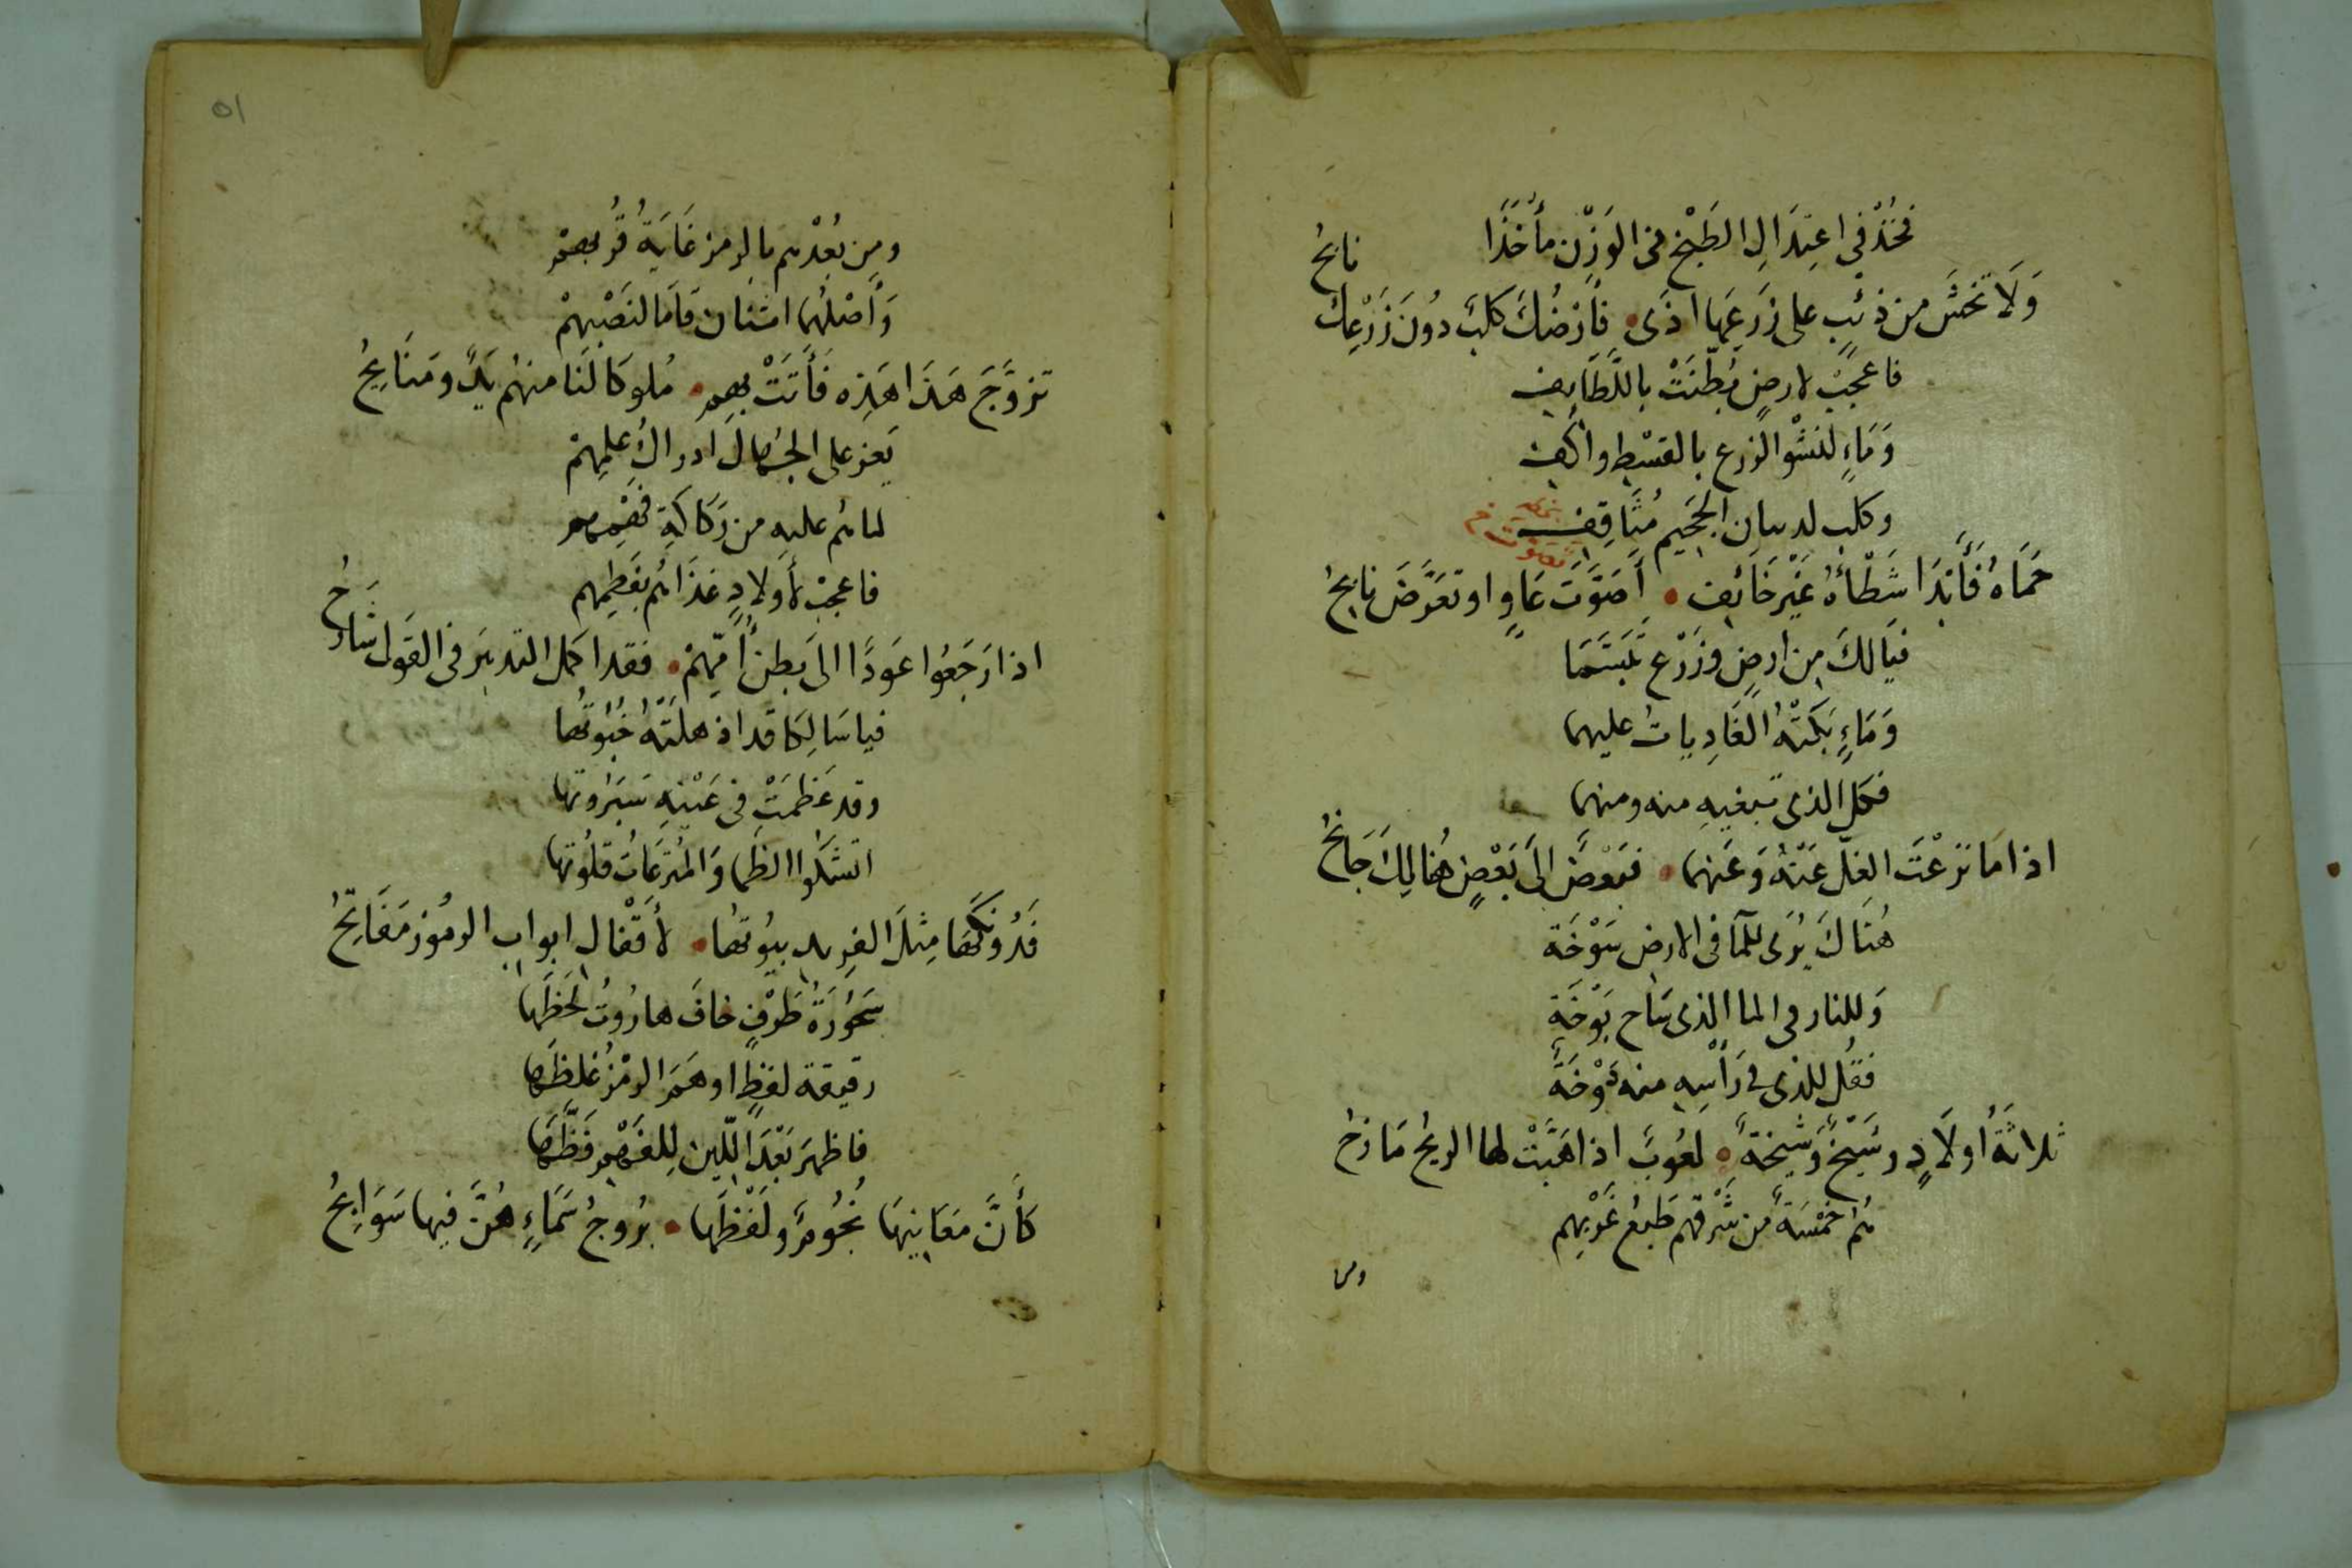 فَخُذْ فِي اعتِدَالِ الطَبْخِ في الوَزْنِ مأخَذًا
وَلَا تَخشَ من ذئبٍ على زَرعِهَا اذَى • فَأرضُكَ كلبٌ دُونَ زَرْعِكَ نابحُ
فاعجبْ لارضٍ بُطِّنَتْ باللَّطَايفِ
وَمَاءٍ لنشْوِ الزرع بالقسْطِ واكفِ
وكلب لديبان الجحيم مُثَاقِفِ
حَمَاهُ فَأَبدَا شَطْأَهُ غَيْرَ خَائفِ • أَصَوَّتَ عَاوٍ او تعَرَّضَ نابحُ
تصوت خ
فيَالكَ من ارضٍ وزَرْعٍ تَبَسَّمَا
وَمَاءٍ بَكَتْهُ الغَادِياتُ عليهما
فكل الذى تبغيهِ منه ومنهما
اذا مَا نزعْتَ الغلّ عَنْهُ وَعَنهما • فبَعضٌ الَى بَعْضٍ هُنالِكَ جَانحُ
هُنَاكَ يُرَى للمآ في الارض سَوْخَة
وَللنار في الما الذى سَاح بَوْخَة
فقُل للذى في رَأسِهِ منه دَوْخَةٌ
ثلاثةُ أولَادٍ وشَيْخٌ وشَيخةٌ • لعُوبٌ اذا هَبَّتْ لها الريحُ مَازحُ
هُم خَمْسَةٌ من شَرْقهم طَبعُ غَرْبِهِم
ومن
٥١
ومِن بُعْدهم بالرمز غَايَةُ قُربهِمْ
وَأصْلهُما اثنان قَامَا لنَصْبِهِمْ
تزوَّجَ هَذَا هَذِه فَأَتَتْ بِهِم • مُلوكا لَنَا منهُم يَدٌ ومَنَايحُ
يَعز على الجُهالِ ادراكُ علمِهِمْ
لما هُم عليهِ من رَكَاكَةِ فَهْمِهِم
فاعجبْ لأولادٍ غذَاهُم بفَطِمِهِم
اذا رَجَعُوا عَودًا الىَ بطنِ أُمّهِمْ • فقد اكمل التدبيرَ في القَول شَارحُ
فيا سَالِكَا قد اذهلَتْهُ خُبُوتُها
وقد عَظُمَتْ في عَيْنهِ سَبَرُوتها
اتشكُوا الظَما وَالمُترَعَاتُ قلُوتها
فَدُونَكَهَا مِثلَ الفرِيدِ بيُوتُها • لأقْفال ابواب الرمُوز مَفَاتِحُ
سَحُورَةُ طَرْفٍ خافَ هارُوتُ لحَظَها
رقيقة لفظٍ اوهَمَ الرمْزُ غلظَها
فاظهرَ بَعْدَ اللّين لِلفهْمِ فَظَّها
كَأَنَّ مَعَانِيهَا نجُومٌ وَلَفْظَها • بُرُوجُ سَمَاءٍ هُنَّ فيها سَوَابحُ